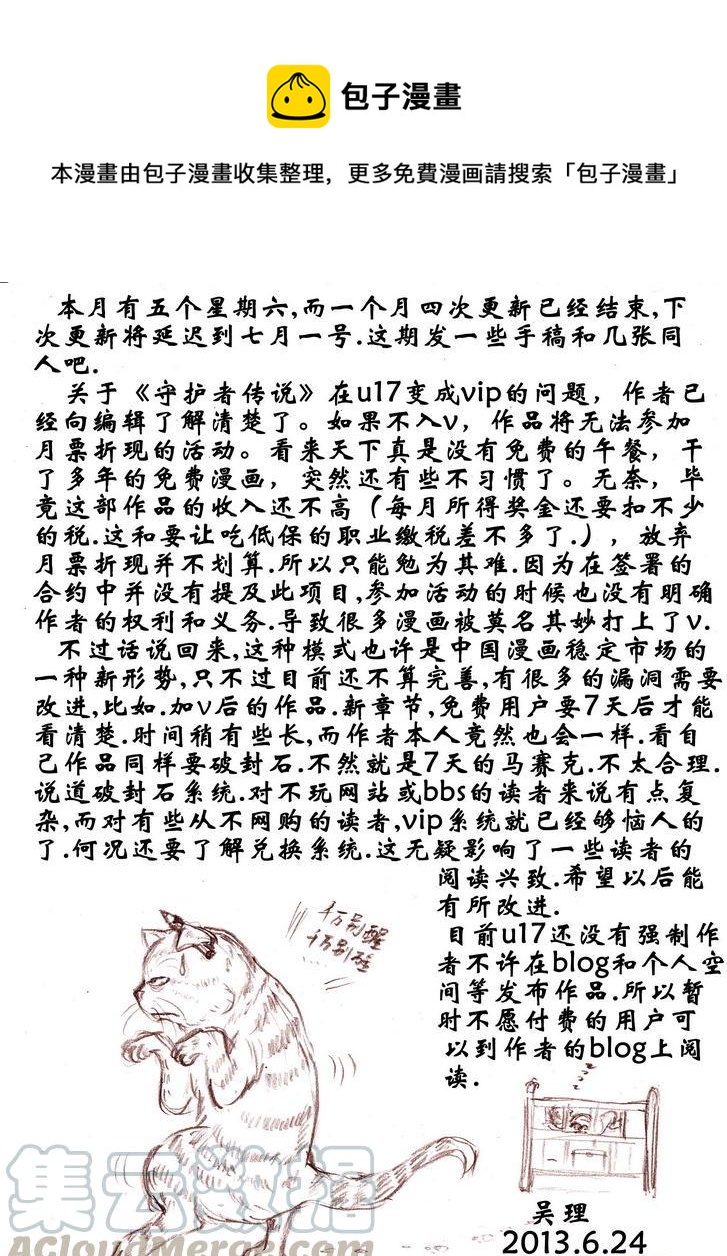 包子漫畫
本漫畫由包子漫畫收集整理，更多免費漫画請搜索「包子漫畫」
本月有五个星期六,而一个月四次更新已经结束,下
次更新将延迟到七月一号.这期发一些手稿和几张同
人吧.
关于《守护者传说》在u17变成vip的问题，作者已
经向编辑了解清楚了。如果不入v，作品将无法参加
月票折现的活动。看来天下真是没有免费的午餐，干
了多年的免费漫画，突然还有些不习惯了。无奈，毕
竟这部作品的收入还不高（每月所得奖金还要扣不少
的税.这和要让吃低保的职业缴税差不多了.），放弃
月票折现并不划算.所以只能勉为其难.因为在签署的
合约中并没有提及此项目,参加活动的时候也没有明确
作者的权利和义务.导致很多漫画被莫名其妙打上了v.
不过话说回来,这种模式也许是中国漫画稳定市场的
一种新形势,只不过目前还不算完善,有很多的漏洞需要
改进,比如.加v后的作品.新章节,免费用户要7天后才能
看清楚.时间稍有些长,而作者本人竟然也会一样.看自
己作品同样要破封石.不然就是7天的马赛克.不太合理.
说道破封石系统.对不玩网站或bbs的读者来说有点复
杂,而对有些从不网购的读者,vip系统就已经够恼人的
了.何况还要了解兑换系统.这无疑影响了一些读者的
阅读兴致.希望以后能
有所改进.
目前u17还没有强制作
者不许在blog和个人空
间等发布作品.所以暂
时不愿付费的用户可
以到作者的blog上阅
读.
千万别醒
千万别醒
z z z
吴理
2013.6.24
集云数据
AcloudMerge.com